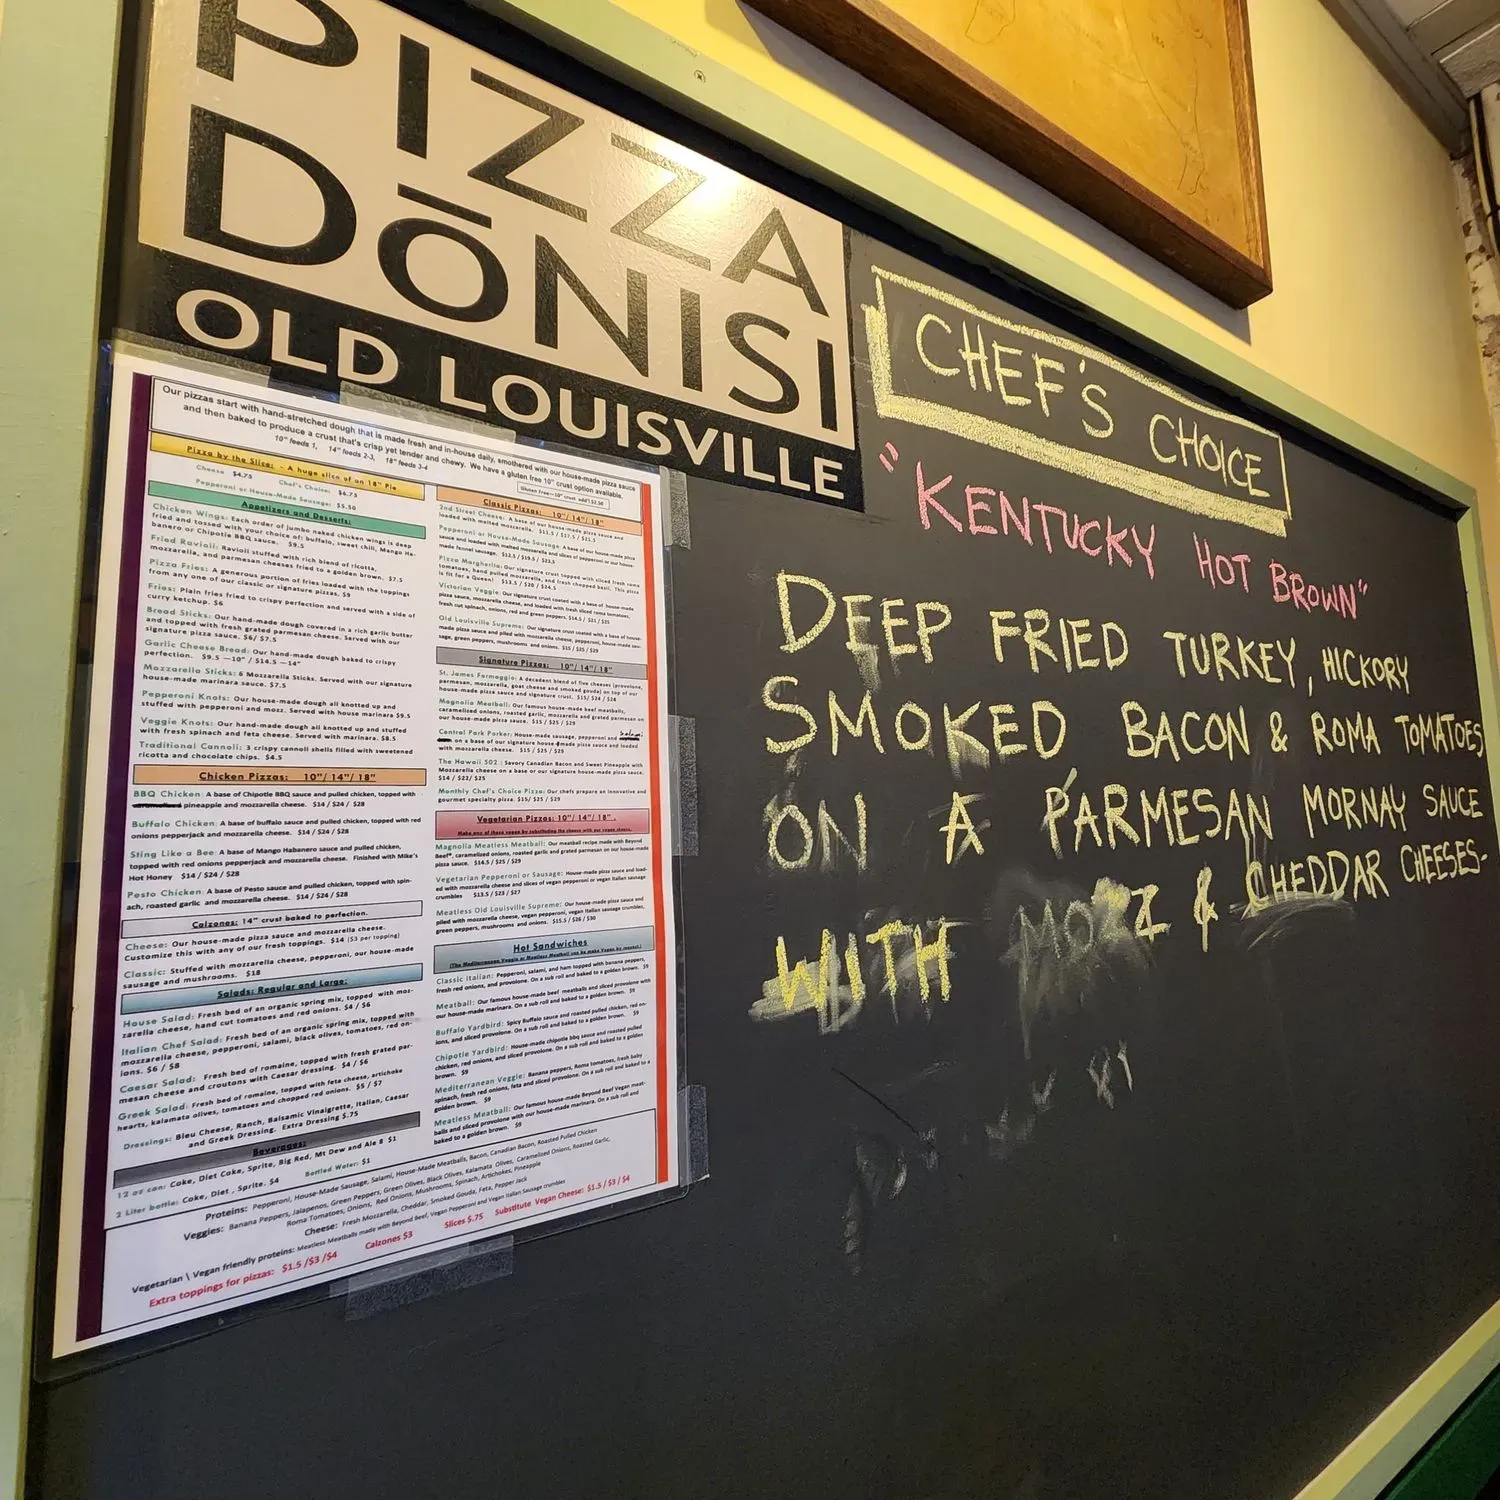 PIZZA
DŌNISI
OLD LOUISVILLE
Our pizzas start with hand-stretched dough that is made fresh and in-house daily, smothered with our house-made pizza sauce
and then baked to produce a crust that's crisp yet tender and chewy. We have a gluten free 10" crust option available.
10" feeds 1, 14" feeds 2-3, 18" feeds 3-4
Pizza by the Slice: - A huge slice of an 18" Pie
Cheese $4.75 Chef's Choice: $6.75
Pepperoni or House-Made Sausage: $5.50
Appetizers and Desserts:
Chicken Wings: Each order of jumbo naked chicken wings is deep
fried and tossed with your choice of: buffalo, sweet chili, Mango Ha-
banero or Chipotle BBQ sauce. $9.5
Fried Ravioli: Ravioli stuffed with rich blend of ricotta,
mozzarella, and parmesan cheeses fried to a golden brown. $7.5
Pizza Fries: A generous portion of fries loaded with the toppings
from any one of our classic or signature pizzas. $9
Fries: Plain fries fried to crispy perfection and served with a side of
curry ketchup. $6
Bread Sticks: Our hand-made dough covered in a rich garlic butter
and topped with fresh grated parmesan cheese. Served with our
signature pizza sauce. $6/ $7.5
Garlic Cheese Bread: Our hand-made dough baked to crispy
perfection. $9.5 —10" / $14.5 —14"
Mozzarella Sticks: 6 Mozzarella Sticks. Served with our signature
house-made marinara sauce. $7.5
Pepperoni Knots: Our house-made dough all knotted up and
stuffed with pepperoni and mozz. Served with house marinara $9.5
Veggie Knots: Our hand-made dough all knotted up and stuffed
with fresh spinach and feta cheese. Served with marinara. $8.5
Traditional Cannoli: 3 crispy cannoli shells filled with sweetened
ricotta and chocolate chips. $4.5
Chicken Pizzas: 10"/ 14"/ 18"
BBQ Chicken: A base of Chipotle BBQ sauce and pulled chicken, topped with
pineapple and mozzarella cheese. $14 / $24 / $28
Buffalo Chicken: A base of buffalo sauce and pulled chicken, topped with red
onions pepperjack and mozzarella cheese. $14 / $24 / $28
Sting Like a Bee: A base of Mango Habanero sauce and pulled chicken,
topped with red onions pepperjack and mozzarella cheese. Finished with Mike's
Hot Honey $14 / $24 / $28
Pesto Chicken: A base of Pesto sauce and pulled chicken, topped with spin-
ach, roasted garlic and mozzarella cheese. $14 / $24 / $28
Calzones: 14" crust baked to perfection.
Cheese: Our house-made pizza sauce and mozzarella cheese.
Customize this with any of our fresh toppings. $14 ($3 per topping)
Classic: Stuffed with mozzarella cheese, pepperoni, our house-made
sausage and mushrooms. $18
Salads: Regular and Large:
House Salad: Fresh bed of an organic spring mix, topped with moz-
zarella cheese, hand cut tomatoes and red onions. $4 / $6
Italian Chef Salad: Fresh bed of an organic spring mix, topped with
mozzarella cheese, pepperoni, salami, black olives, tomatoes, red on-
ions. $6 / $8
Caesar Salad: Fresh bed of romaine, topped with fresh grated par-
mesan cheese and croutons with Caesar dressing. $4 / $6
Greek Salad: Fresh bed of romaine, topped with feta cheese, artichoke
hearts, kalamata olives, tomatoes and chopped red onions. $5 / $7
Dressings: Bleu Cheese, Ranch, Balsamic Vinaigrette, Italian, Caesar
and Greek Dressing. Extra Dressing $.75
Beverages:
12 oz can: Coke, Diet Coke, Sprite, Big Red, Mt Dew and Ale 8 $1
Bottled Water: $1
2 Liter bottle: Coke, Diet, Sprite. $4
Classic Pizzas: 10"/ 14"/ 18"
2nd Street Cheese: A base of our house-made pizza sauce and
loaded with melted mozzarella.
Pepperoni or House-Made Sausage: A base of our house-made pizza
sauce and loaded with melted mozzarella and slices of pepperoni or our house-
made fennel sausage.
Pizza Margherita: Our signature crust topped with sliced fresh roma
tomatoes, hand pulled mozzarella, and fresh chopped basil. This pizza
is fit for a Queen! $13.5 / $20 / $24.5
Victorian Veggie: Our signature crust coated with a base of house-made
pizza sauce, mozzarella cheese, and loaded with fresh sliced roma tomatoes,
fresh cut spinach, onions, red and green peppers. $14.5 / $21 / $25
Old Louisville Supreme: Our signature crust coated with a base of house-
made pizza sauce and piled with mozzarella cheese, pepperoni, house-made sau-
sage, green peppers, mushrooms and onions. $15 / $25 / $29
Signature Pizzas: 10"/ 14"/ 18"
St. James Formaggio: A decadent blend of five cheeses (provolone,
parmesan, mozzarella, goat cheese and smoked gouda) on top of our
house-made pizza sauce and signature crust. $15/ $24 / $28
Magnolia Meatball: Our famous house-made beef meatballs,
caramelized onions, roasted garlic, mozzarella and grated parmesan on
our house-made pizza sauce. $15 / $25 / $29
Central Park Porker: House-made sausage, pepperoni and salami
on a base of our signature house-made pizza sauce and loaded
with mozzarella cheese. $15 / $25 / $29
The Hawaii 502: Savory Canadian Bacon and Sweet Pineapple with
Mozzarella cheese on a base or our signature house-made pizza sauce.
$14 / $22/ $25
Monthly Chef's Choice Pizza: Our chefs prepare an innovative and
gourmet specialty pizza. $15/ $25 / $29
Vegetarian Pizzas: 10"/ 14"/ 18".
Make any of these vegan by substituting the cheese with our vegan cheese.
Magnolia Meatless Meatball: Our meatball recipe made with Beyond
Beef®, caramelized onions, roasted garlic and grated parmesan on our house-made
pizza sauce. $14.5 / $25 / $29
Vegetarian Pepperoni or Sausage: House-made pizza sauce and load-
ed with mozzarella cheese and slices of vegan pepperoni or vegan Italian sausage
crumbles $13.5 / $23 / $27
Meatless Old Louisville Supreme: Our house-made pizza sauce and
piled with mozzarella cheese, vegan pepperoni, vegan Italian sausage crumbles,
green peppers, mushrooms and onions. $15.5 / $26 / $30
Hot Sandwiches
(The Mediterranean Veggie or Meatless Meatball can be made Vegan by request.)
Classic Italian: Pepperoni, salami, and ham topped with banana peppers,
fresh red onions, and provolone. On a sub roll and baked to a golden brown. $9
Meatball: Our famous house-made beef meatballs and sliced provolone with
our house-made marinara. On a sub roll and baked to a golden brown. $9
Buffalo Yardbird: Spicy Buffalo sauce and roasted pulled chicken, red on-
ions, and sliced provolone. On a sub roll and baked to a golden brown. $9
Chipotle Yardbird: House-made chipotle bbq sauce and roasted pulled
chicken, red onions, and sliced provolone. On a sub roll and baked to a golden
brown. $9
Mediterranean Veggie: Banana peppers, Roma tomatoes, fresh baby
spinach, fresh red onions, feta and sliced provolone. On a sub roll and baked to a
golden brown. $9
Meatless Meatball: Our famous house-made Beyond Beef Vegan meat-
balls and sliced provolone with our house-made marinara. On a sub roll and
baked to a golden brown. $9
Proteins: Pepperoni, House-Made Sausage, Salami, House-Made Meatballs, Bacon, Canadian Bacon, Roasted Pulled Chicken
Veggies: Banana Peppers, Jalapenos, Green Peppers, Green Olives, Black Olives, Kalamata Olives, Caramelized Onions, Roasted Garlic,
Roma Tomatoes, Onions, Red Onions, Mushrooms, Spinach, Artichokes, Pineapple
Cheese: Fresh Mozzarella, Cheddar, Smoked Gouda, Feta, Pepper Jack
Vegetarian \ Vegan friendly proteins: Meatless Meatballs made with Beyond Beef, Vegan Pepperoni and Vegan Italian Sausage crumbles
Extra toppings for pizzas: $1.5 /$3 /$4 Calzones $3 Slices $.75 Substitute Vegan Cheese: $1.5 / $3 / $4
CHEF'S CHOICE
"KENTUCKY HOT BROWN"
DEEP FRIED TURKEY, HICKORY
SMOKED BACON & ROMA TOMATOES
ON A PARMESAN MORNAY SAUCE
WITH MOZZ & CHEDDAR CHEESES-